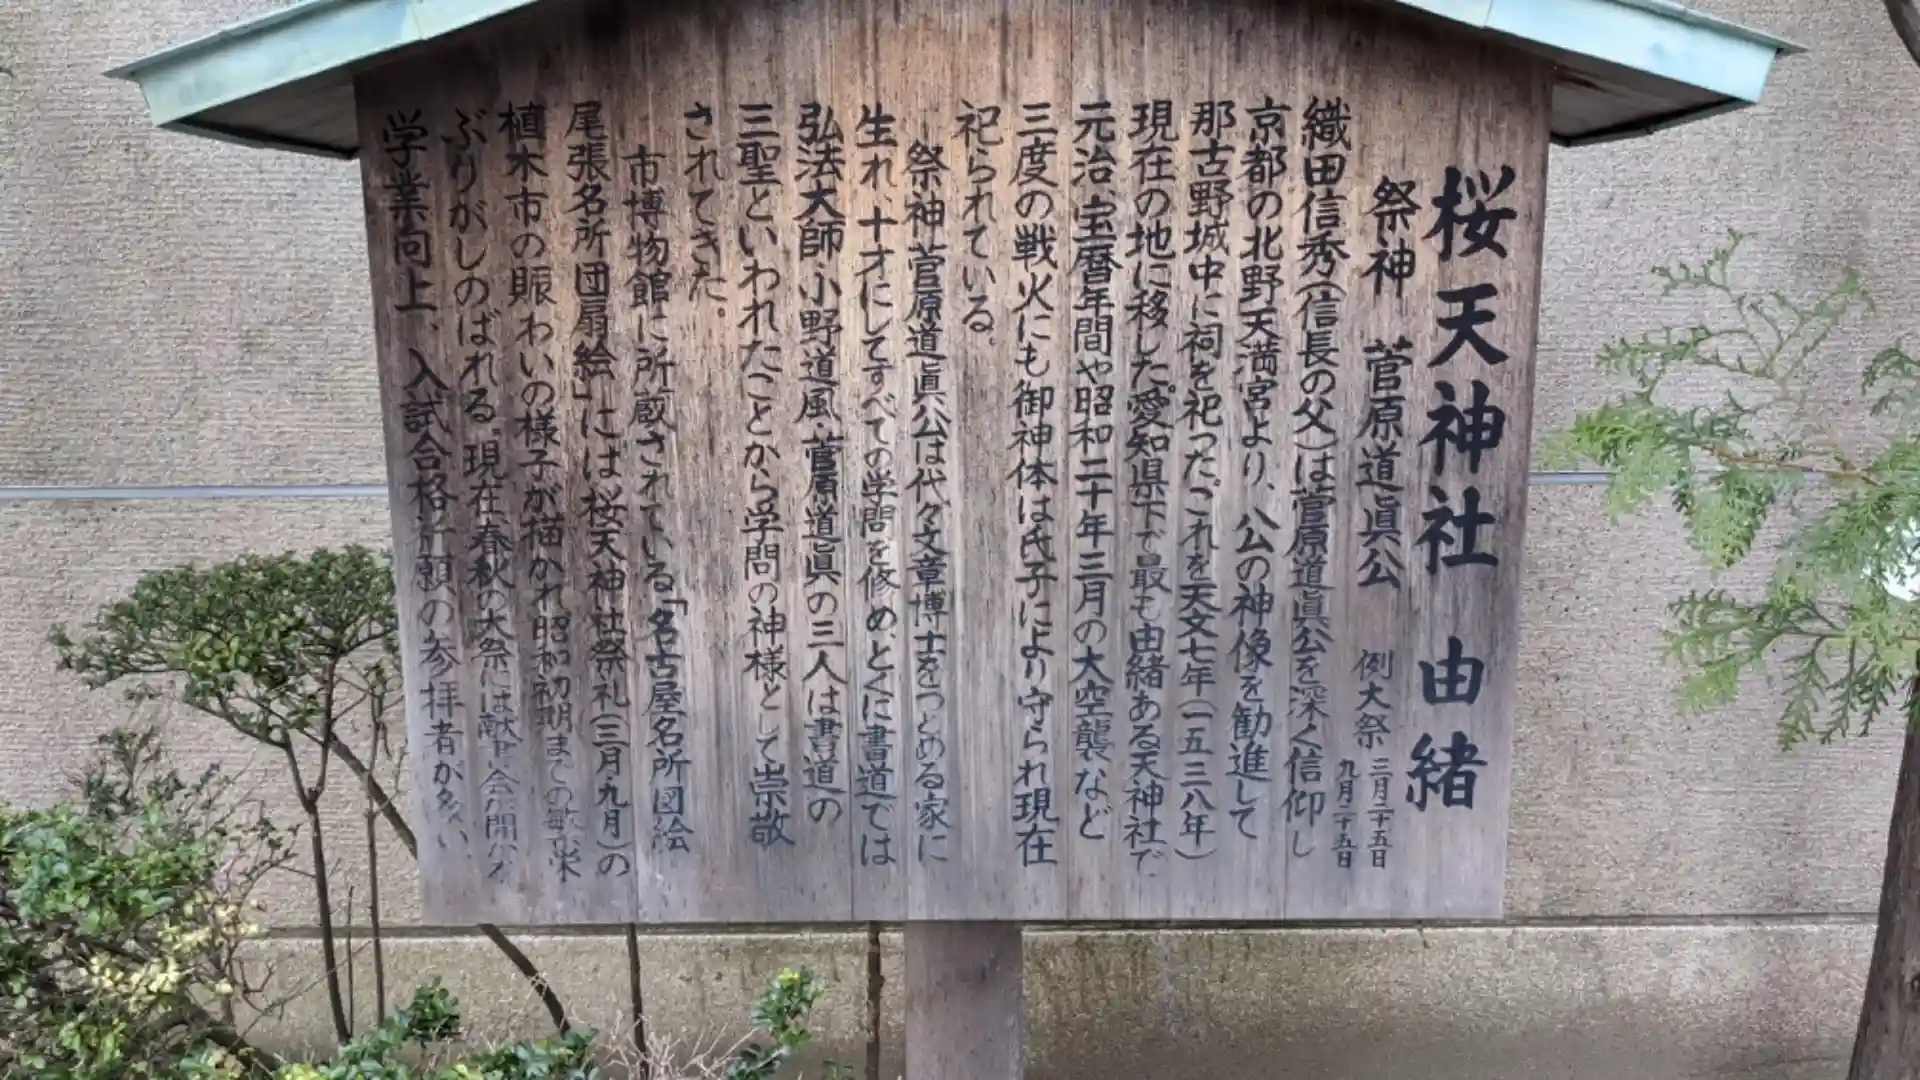 桜天神社 由緒
祭神 菅原道眞公 例大祭 三月二十五日
九月二十五日
織田信秀(信長の父)は菅原道眞公を深く信仰し
京都の北野天満宮より、公の神像を勧進して
那古野城中に祠を祀った。これを天文七年(一五三八年)
現在の地に移した。愛知県下で最も由緒ある天神社で
元治、宝暦年間や昭和二十年三月の大空襲など
三度の戦火にも御神体は氏子により守られ現在
祀られている。
祭神菅原道眞公は代々文章博士をつとめる家に
生れ、十才にしてすべての学問を修め、とくに書道では
弘法大師・小野道風・菅原道眞の三人は書道の
三聖といわれたことから学問の神様として崇敬
されてきた。
市博物館に所蔵されている「名古屋名所図絵
尾張名所団扇絵」には桜天神社祭礼(三月・九月)の
植木市の賑わいの様子が描かれ昭和初期までの繁栄
ぶりがしのばれる。現在春秋の大祭には献書会が開かれ
学業向上、入試合格祈願の参拝者が多い。